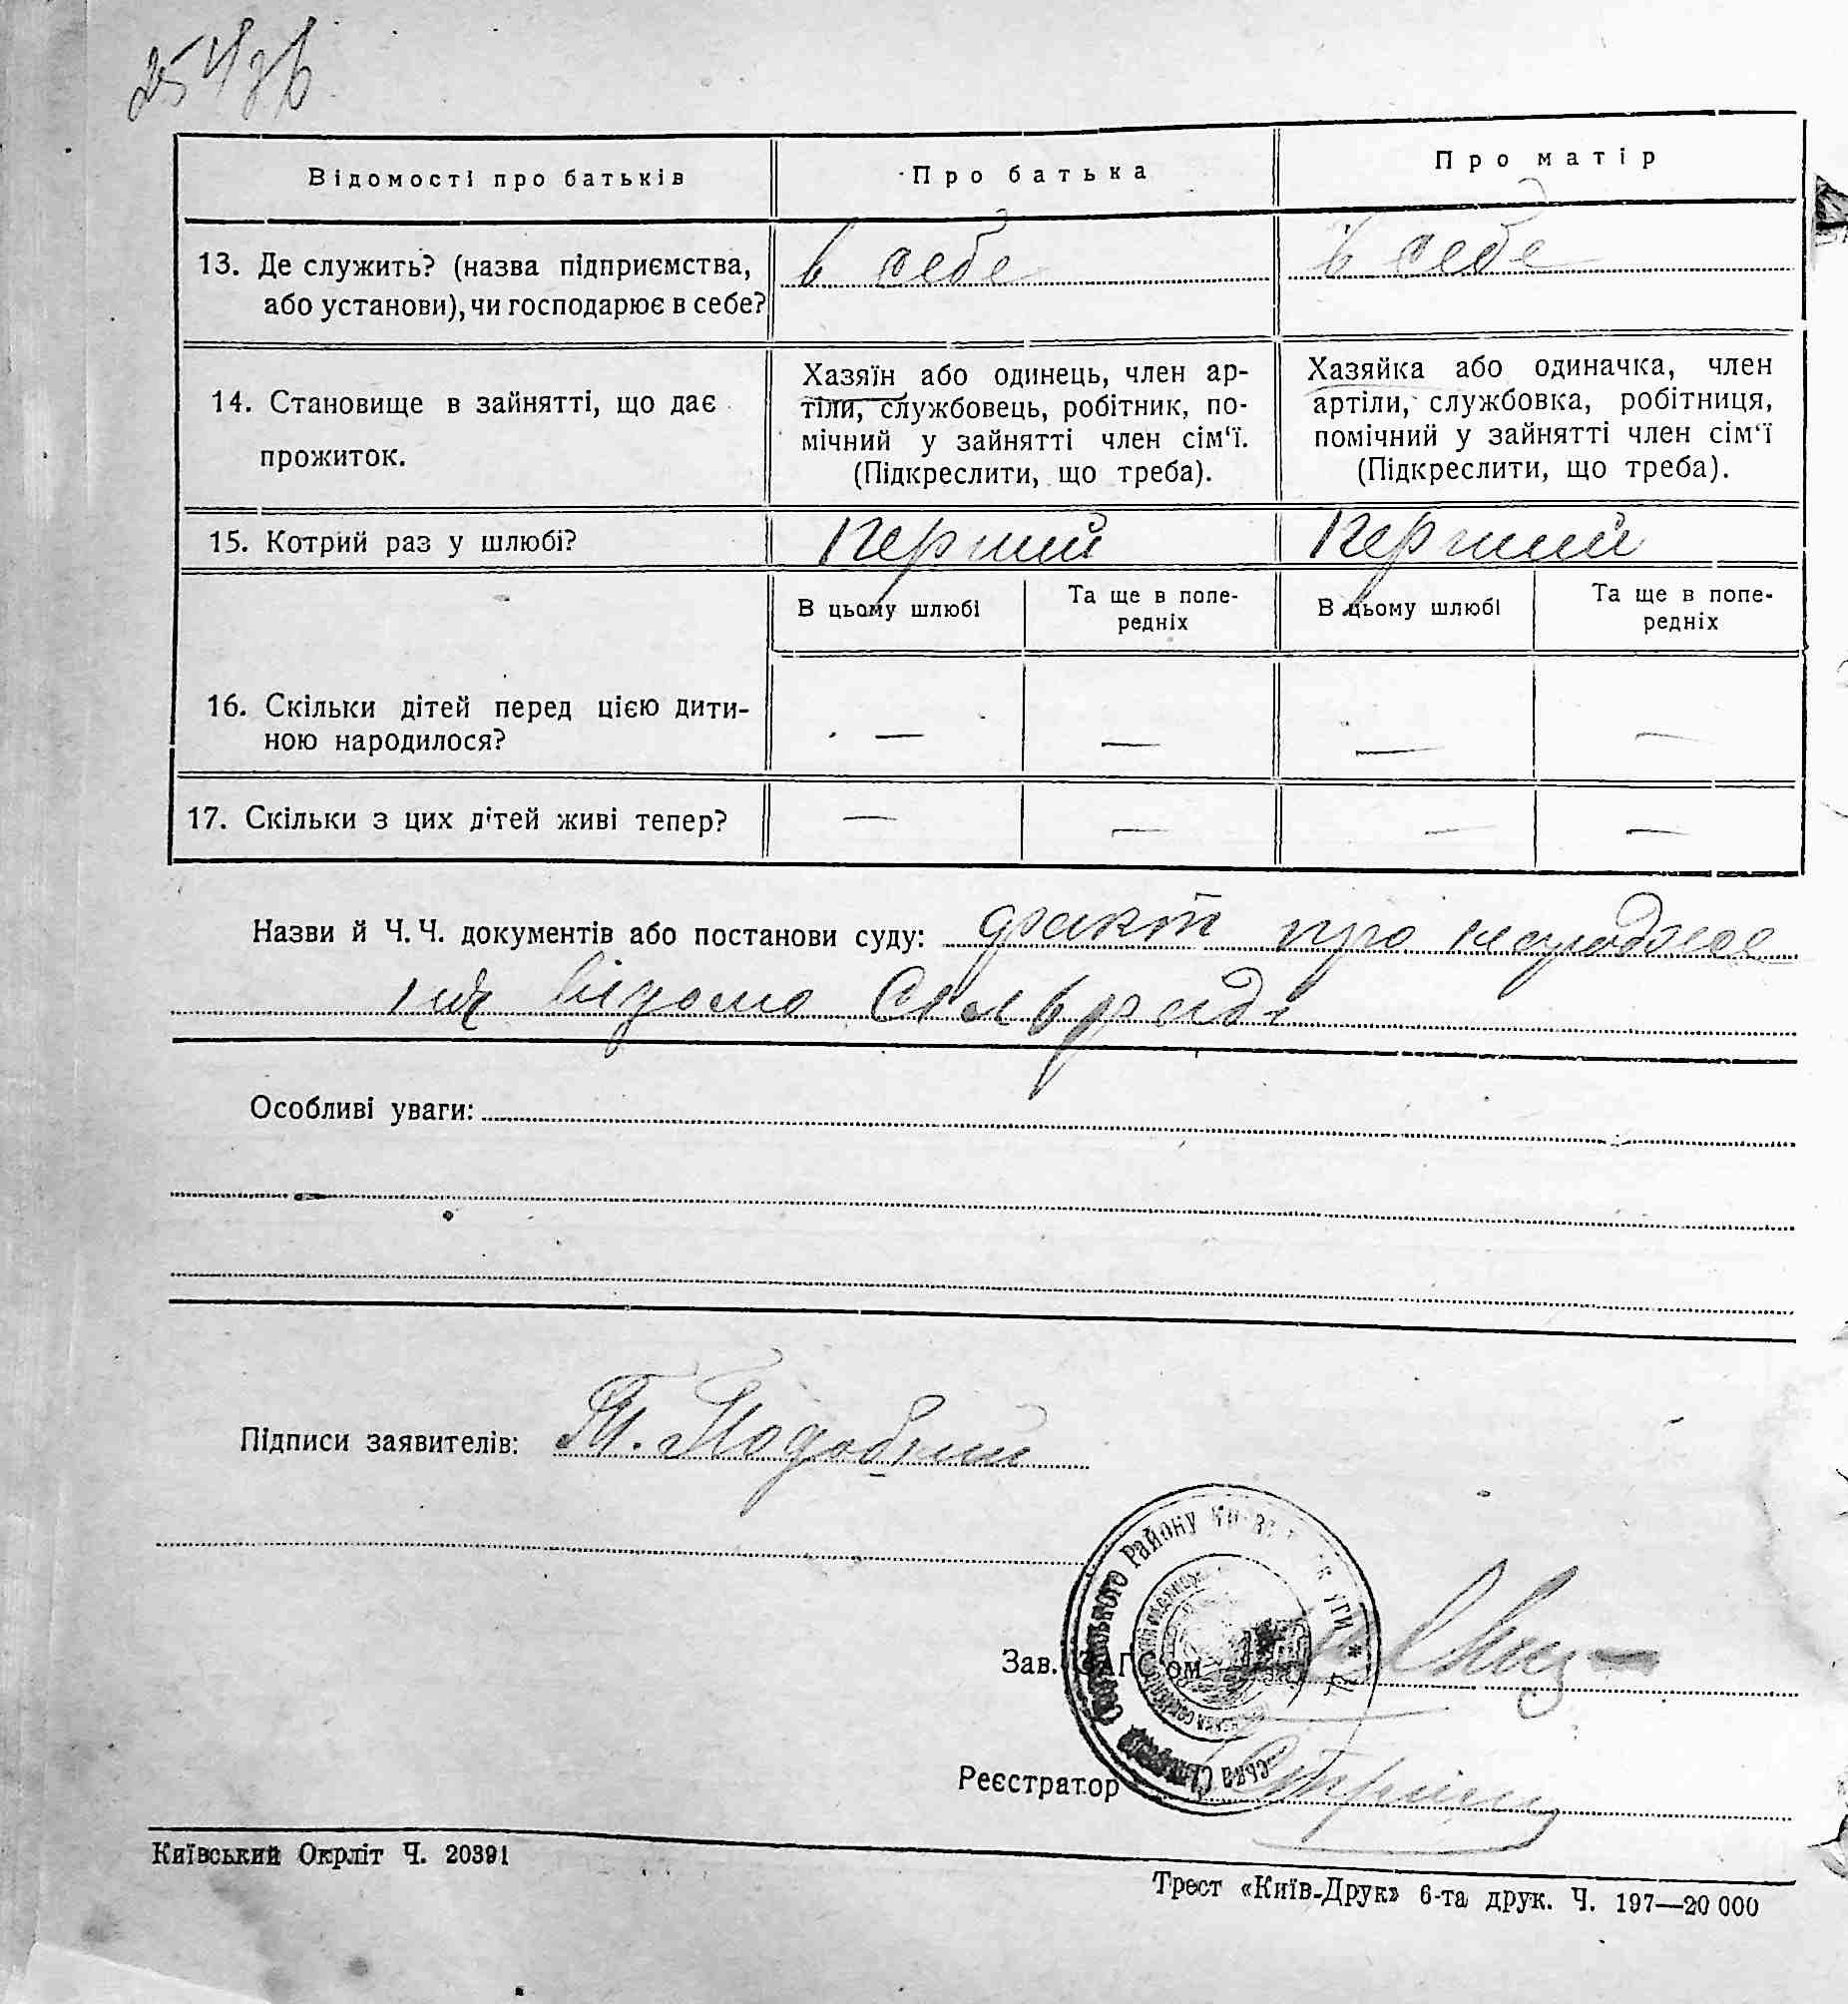 254 зв
Відомості про батьків
Про батька
Про матір
13. Де служить? (назва підприємства,
або установи), чи господарює в себе?
в себе
в себе
14. Становище в зайнятті, що дає
прожиток.
Хазяїн або одинець, член ар-
тіли, службовець, робітник, по-
мічний у зайнятті член сім‘ї.
(Підкреслити, що треба).
Хазяйка або одиначка, член
артіли, службовка, робітниця,
помічний у зайнятті член сім‘ї
(Підкреслити, що треба).
15. Котрий раз у шлюбі?
Перший
Перший
В цьому шлюбі
Та ще в попе-
редніх
В цьому шлюбі
Та ще в попе-
редніх
16. Скільки дітей перед цією дити-
ною народилося?
— — — —
17. Скільки з цих дітей живі тепер?
— — — —
Назви й Ч. Ч. документів або постанови суду: факт про народжен
ня відомо Сільраді
Особливі уваги:
Підписи заявителів: Т. Подобний
Району
Зав. ЗАГС ом
Реєстратор
Київський Окрліт Ч. 20391
Трест «Київ-Друк» 6-та друк. Ч. 197—20 000